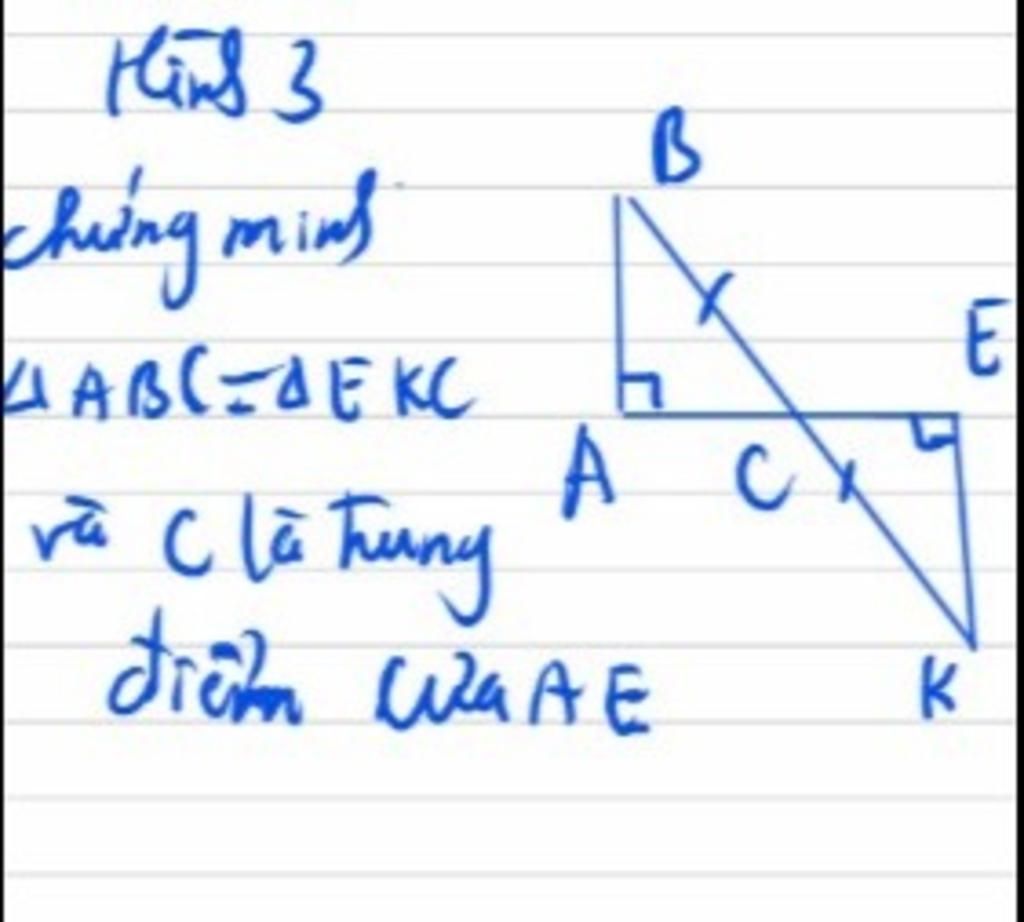 Hình 3
chứng minh
Δ ABC = Δ EKC
và C là trung
điểm của AE
B
E
A
C
K